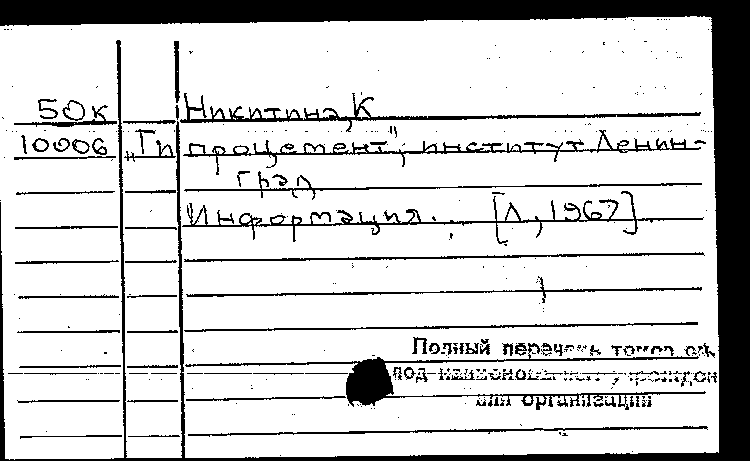 50к Никитина, К
10006 „Гипроцемент", институт. Ленин-
град
Информация... [Л, 1967]
Полный перечень томов см.
под наименованием учрежден
или организации